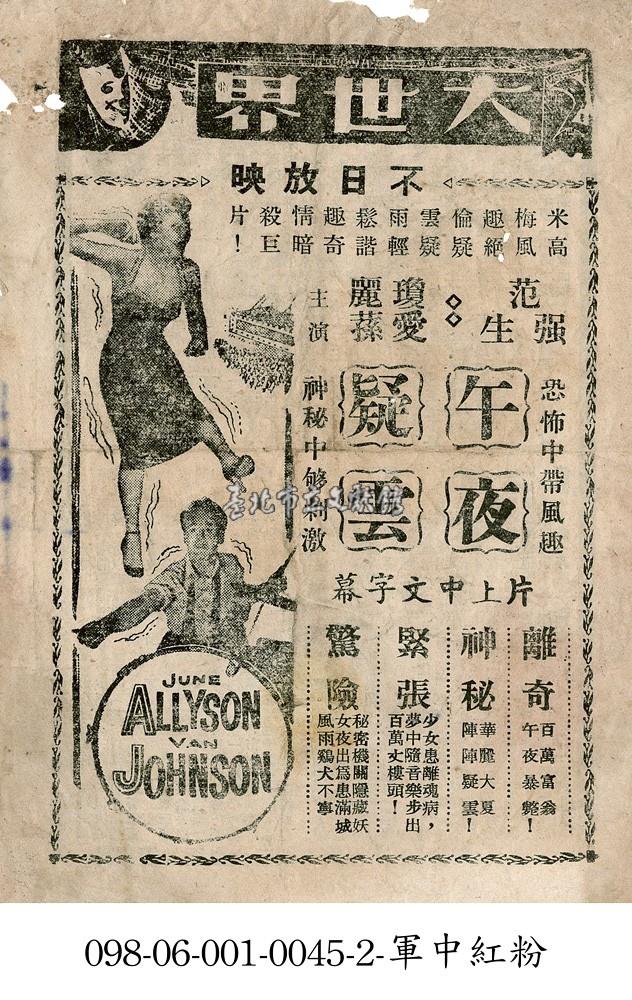 大世界
不日放映
米高梅風趣絕倫疑雲疑雨輕鬆諧趣奇情暗殺巨片！
范强生
瓊愛麗蓀
主演
恐怖中帶風趣
午夜疑雲
神秘中够刺激
片上中文字幕
離奇
百萬富翁
午夜暴斃！
神秘
華麗大夏
陣陣疑雲！
緊張
少女患離魂病，
夢中隨音樂步出
百萬丈樓頭！
驚險
秘密機關隱藏妖
女夜出為患滿城
風雨鷄犬不寧
JUNE
ALLYSON
VAN
JOHNSON
臺北市立文獻館
098-06-001-0045-2-軍中紅粉